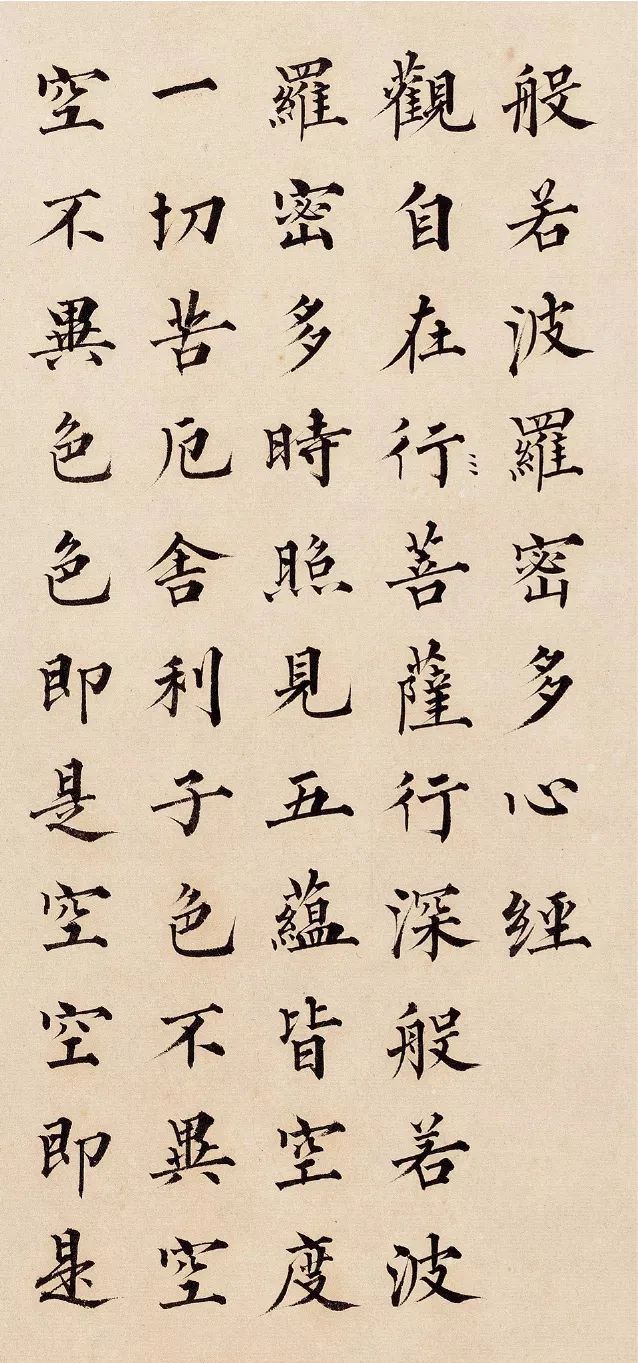 般若波羅密多心經
觀自在行菩薩行深般若波
羅密多時照見五蘊皆空度
一切苦厄舍利子色不異空
空不異色色即是空空即是